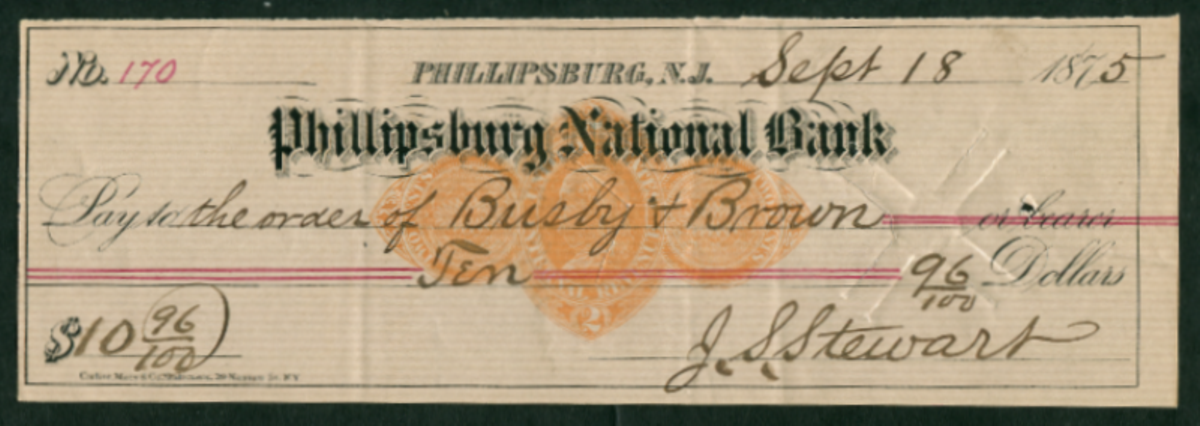 No. 170 PHILLIPSBURG, N.J. Sept 18 1875
Phillipsburg National Bank
Pay to the order of Busby & Brown or bearer
Ten 96/100 Dollars
$10 96/100 J. S. Stewart
2